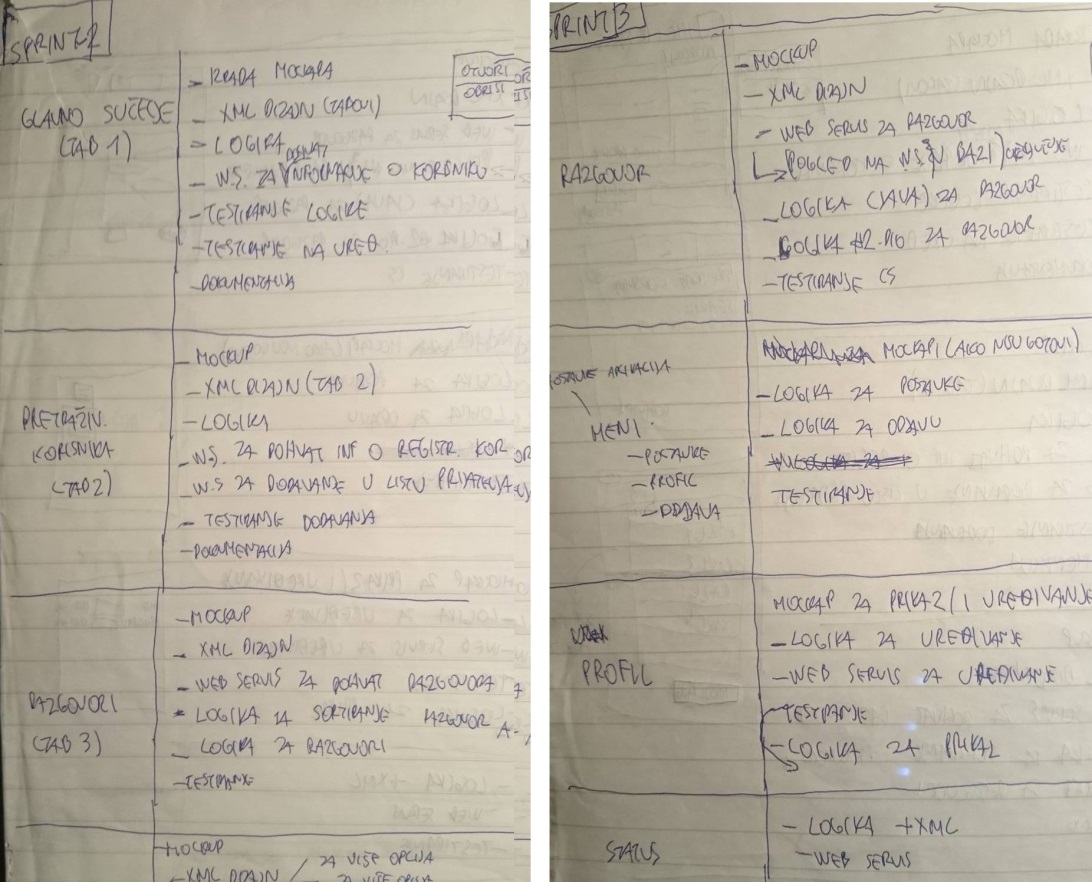 SPRINT 2
GLAVNO SUČELJE
(TAB 1)
- IZRADA MOCKAPA
- XML DIZAJN (TABOVI)
- LOGIKA
DOHVAT
- W.S. ZA INFORMACIJE O KORISNIKU
- TESTIRANJE LOGIKE
- TESTIRANJE NA UREĐ.
- DOKUMENTACIJA
OTVORI
OBRIŠI
PRETRAŽIV.
KORISNIKA
(TAB 2)
- MOCKUP
- XML DIZAJN (TAB 2)
- LOGIKA
- W.S. ZA DOHVAT INF O REGISTR. KOR
- W.S ZA DODAVANJE U LISTU PRIJATELJA
- TESTIRANJE DODAVANJA
- DOKUMENTACIJA
RAZGOVORI
(TAB 3)
- MOCKUP
- XML DIZAJN
- WEB SERVIS ZA DOHVAT RAZGOVORA
- LOGIKA ZA SORTIRANJE RAZGOVOR A-
- LOGIKA ZA RAZGOVORI
- TESTIRANJE
- MOCKUP
- XML DIZAJN / ZA VIŠE OPCIJA
ZA VIŠE OPCIJA
SPRINT 3
RAZGOVOR
- MOCKUP
- XML DIZAJN
- WEB SERVIS ZA RAZGOVOR
POGLED NA W.S. U BAZI
- LOGIKA (JAVA) ZA RAZGOVOR
- LOGIKA #2. DIO ZA RAZGOVOR
- TESTIRANJE CS
POSTAVKE APLIKACIJA
MENI
- POSTAVKE
- PROFIL
- ODJAVA
MOCKAPI (AKO NISU GOTOVI)
- LOGIKA ZA POSTAVKE
- LOGIKA ZA ODJAVU
TESTIRANJE
PROFIL
MOCKAP ZA PRIKAZ / I UREĐIVANJE
- LOGIKA ZA UREĐIVANJE
- WEB SERVIS ZA UREĐIVANJE
TESTIRANJE
- LOGIKA ZA PRIKAZ
STATUS
- LOGIKA + XML
- WEB SERVIS